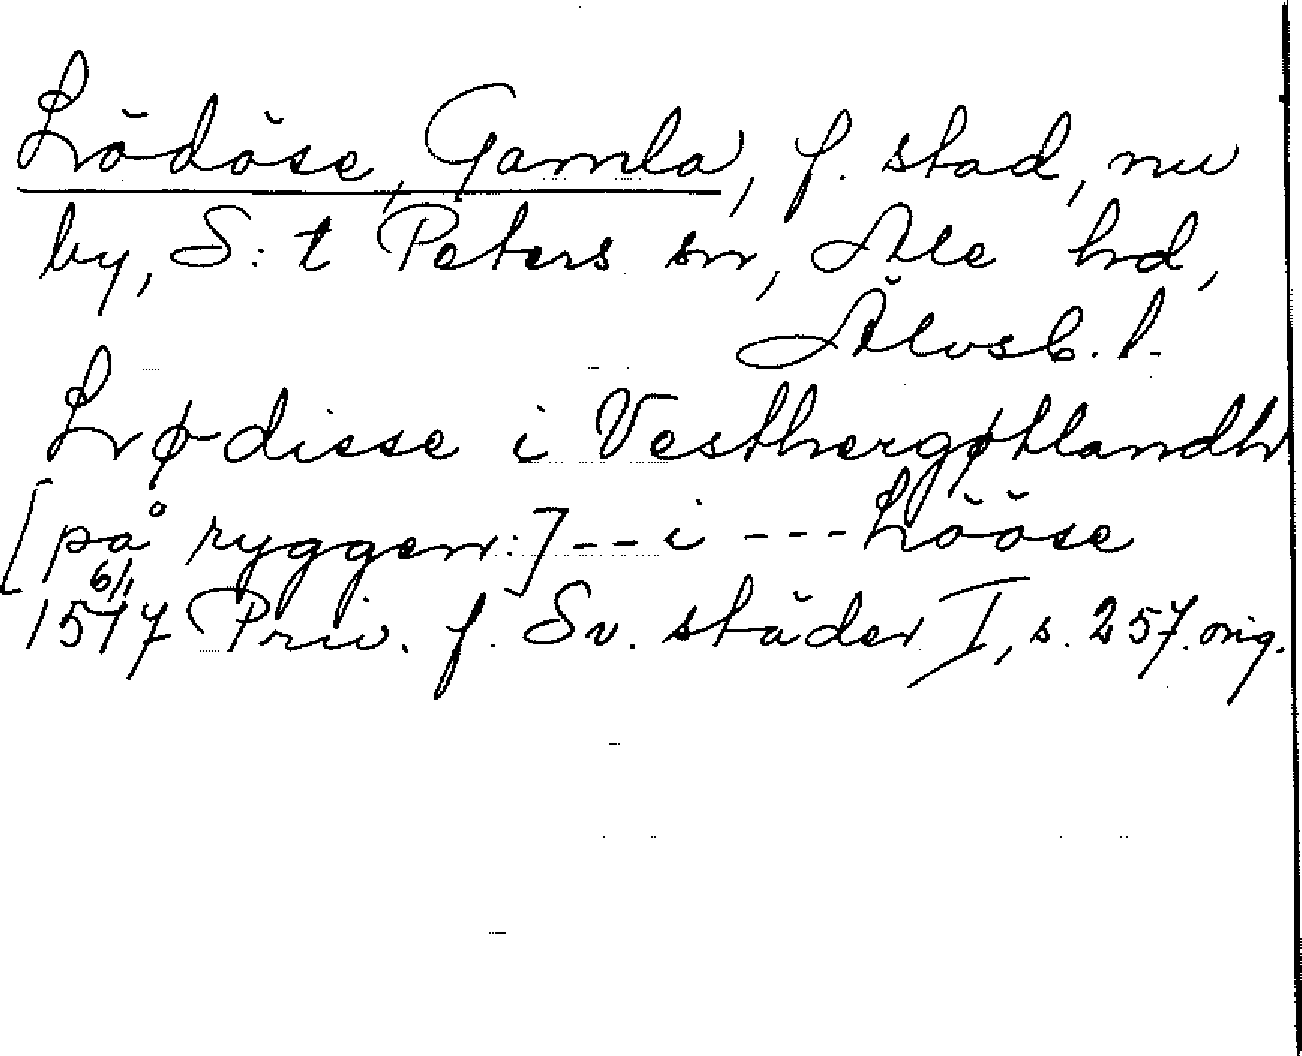 Lödöse, Gamla, f. stad, nu
by, S:t Peters sn, Ale hd,
Älvsb. l.
Lødisse i Vesthergøtlandh
[på ryggen:] -- i --- Lööse
6/11
1517 Priv. f. Sv. städer I, s. 257. orig.